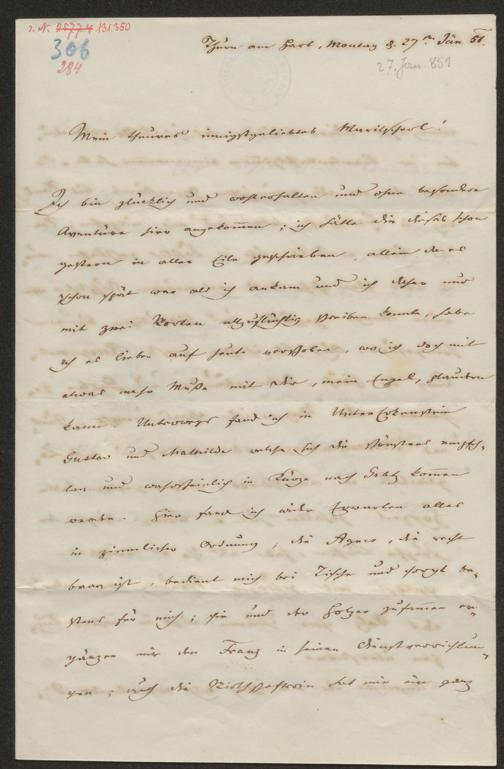 I. N. 25774 131.350
306
284
Thurn am Hart, Montag d. 27ten Jän. 51.
27. Jän. 851
Mein theures innigstgeliebtes Maritscherl!
Ich bin glücklich und wohlerhalten und ohne besondere
Aventüre hier angekommen; ich hätte dir dieses schon
gestern in aller Eile geschrieben, allein da es
schon spät war als ich ankam und ich daher nur
mit zwei Worten allzuflüchtig schreiben konnte, habe
ich es lieber auf heute verschoben, wo ich doch mit
etwas mehr Muße mit dir, mein Engel, plaudern
kann. Unterwegs fand ich in Unter Erkenstein
Gustav und Mathilde welche sich dir schönstens empfeh-
len und wahrscheinlich in Kürze nach Gratz kommen
werden. Hier fand ich wider Erwarten alles
in ziemlicher Ordnung; die Agnes, die recht
brav ist, bedient mich bei Tische und sorgt be-
stens für mich; sie und der Holzer zusammen er-
gänzen mir den Franz in seinen Dienstverrichtun-
gen; auch die Wirthschafterin hat mir ein ganz